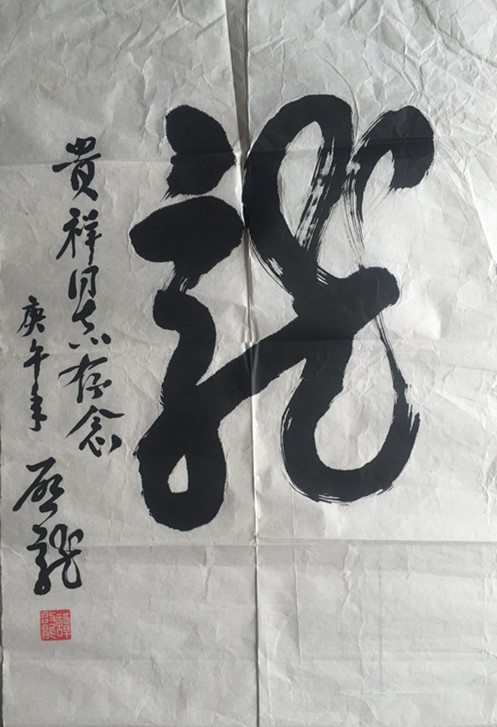 龍
貴祥同志存念
庚午年
啟龍